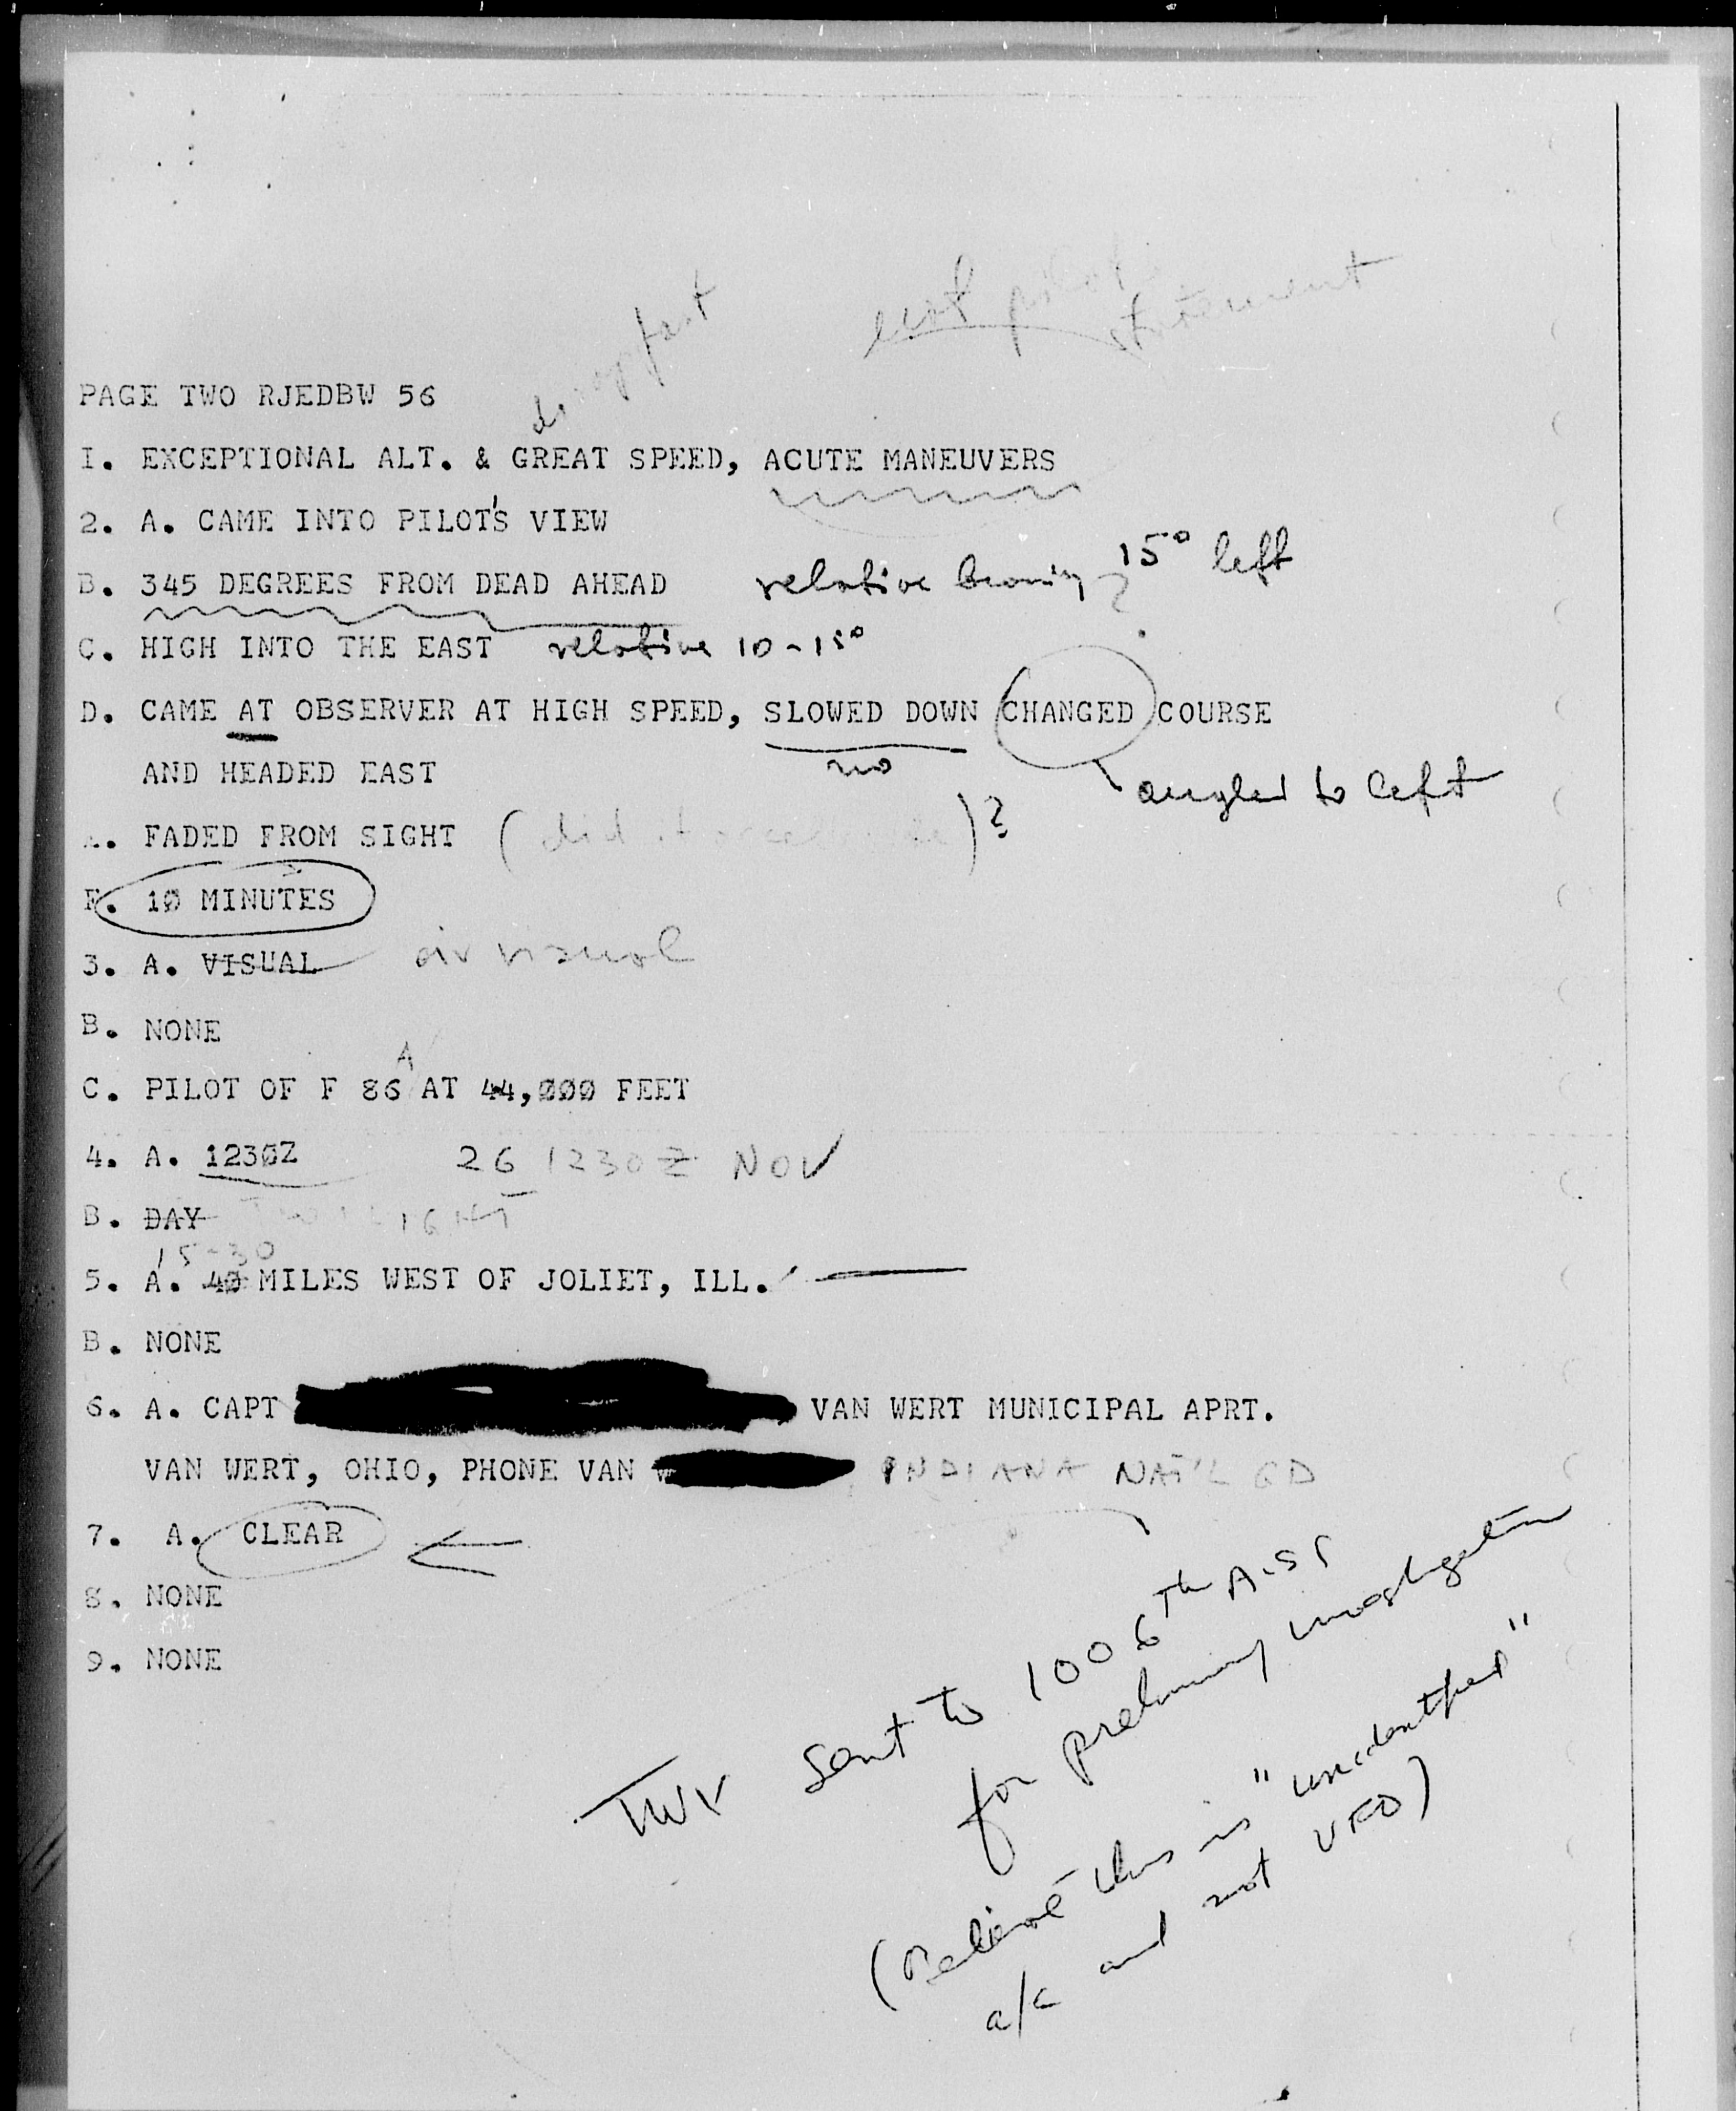 not pilot
statement
fast
PAGE TWO RJEDBW 56
I. EXCEPTIONAL ALT. & GREAT SPEED, ACUTE MANEUVERS
2. A. CAME INTO PILOT'S VIEW
B. 345 DEGREES FROM DEAD AHEAD relative bearing 15° left
C. HIGH INTO THE EAST relative 10-15°
D. CAME AT OBSERVER AT HIGH SPEED, SLOWED DOWN CHANGED COURSE
no
AND HEADED EAST angled to left
. FADED FROM SIGHT (did it )?
F. 10 MINUTES
3. A. VISUAL air visual
B. NONE
A
C. PILOT OF F 86 AT 44,000 FEET
4. A. 1230Z 26 1230Z NOV
B. DAY TWILIGHT
15-30
5. A. 40 MILES WEST OF JOLIET, ILL.
B. NONE
6. A. CAPT VAN WERT MUNICIPAL APRT.
VAN WERT, OHIO, PHONE VAN W INDIANA NAT'L GD
7. A. CLEAR
8. NONE
9. NONE
TWX sent to 1006th AISS
for preliminary investigation
(Believe this is "unidentified"
a/c and not UFO)